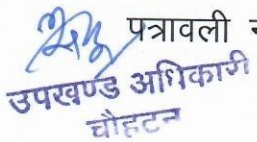 पत्रावली
उपखण्ड अधिकारी
चौहटन